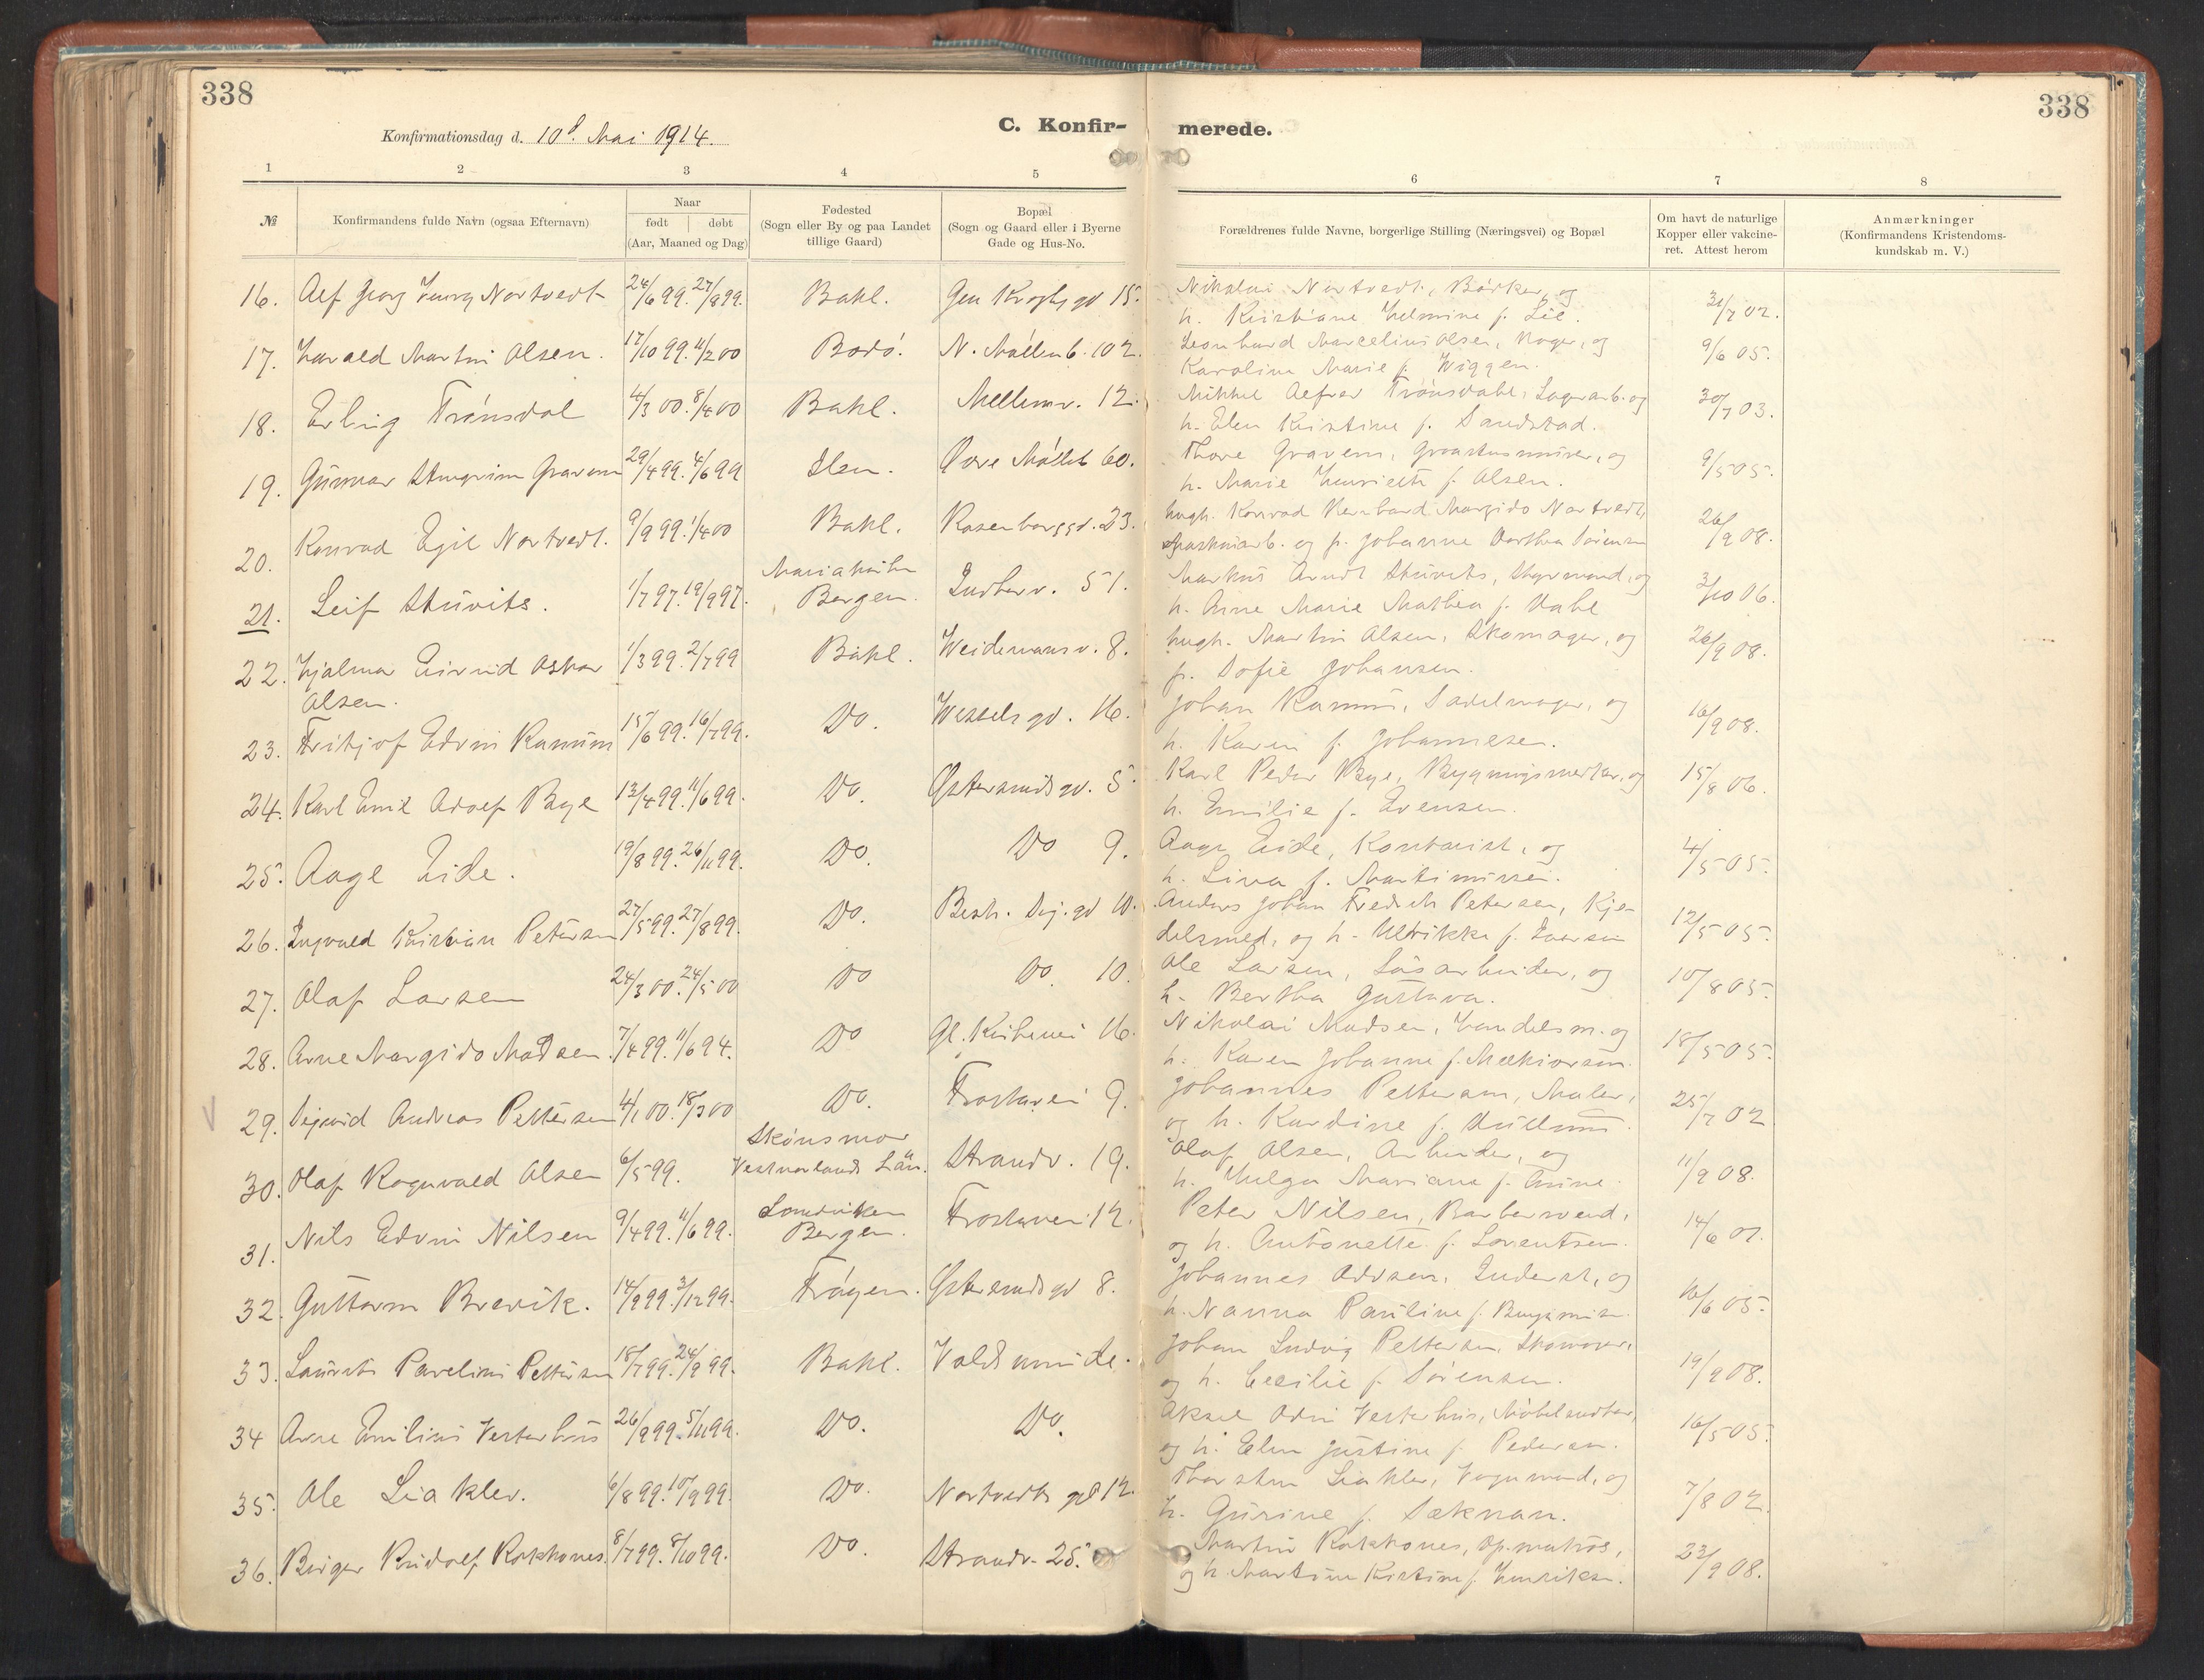 338
338
Konfirmationsdag d. 10d. Mai 1914.
C. Konfirmerede.
1 2 3 4 5 6 7 8
№
Konfirmandens fulde Navn (ogsaa Efternavn)
Naar
født døbt
(Aar, Maaned og Dag)
Fødested
(Sogn eller By og paa Landet
tillige Gaard)
Bopæl
(Sogn og Gaard eller i Byerne
Gade og Hus-No.
Forældrenes fulde Navne, borgerlige Stilling (Næringsvei) og Bopæl
Om havt de naturlige
Kopper eller vakcine-
ret. Attest herom
Anmærkninger
(Konfirmandens Kristendoms-
kundskab m. V.)
16. Alf Georg Nortvedt 24/6 99. 27/8 99. Bakl. Gen Kroghs gd 15. Nikolai Nortvedt, Bødker, og
h. Kristiane Helmine f. Lie. 31/7 02.
17. Harald Martin Olsen. 17/10 99. 11/2 00 Bodø. N. Møllenb. 102. Leonhard Marcelius Olsen, og
Karoline Marie f. Wiggen. 9/6 05.
18. Erling Trønsdal 4/3 00. 8/4 00 Bakl. Mellemv. 12. Mikkel Alfred Trønsdahl, Lagerarb. og
h. Elen Kristine f. Sandstad. 30/7 03.
19. Gunnar Gravem 29/4 99. 4/6 99 Ilen. Øvre Møllb 60. Thore Gravem, og
h. Marie Henriette f. Olsen. 9/5 05.
20. Konrad Egil Nortvedt. 9/9 99. 1/4 00 Bakl. Rosenborggd. 23. Konrad Bernhard Margido Nortvedt,
og p. Johanne Dorthea Sørensen 26/9 08.
21. Leif Stuvits. 1/7 97. 19/9 97. Mariakirken
Bergen. Indherv. 51. Markus Arndt Stuvits, Styrmand, og
h. Anne Marie Mathea f. Dahl 3/10 06.
22. Hjalmar Eivind Oskar 1/3 99. 2/7 99 Bakl. Weidemansv. 8. Martin Olsen, Skomager, og
Olsen. p. Sofie Johansen. 26/9 08.
23. Frithjof Edvin Ranum 15/6 99. 16/7 99. Do. Wesselsgd. 16. Johan Ranum, Sadelmager, og
h. Karen f. Johannesen. 16/9 08.
24. Karl Emil Adolf Bye 13/4 99. 11/6 99. Do. Østersundsgd. 5. Karl Peder Bye, Bygningssnedker, og
h. Emilie f. Evensen. 15/8 06.
25. Aage Eide. 19/8 99. 26/11 99. Do. Do 9. Aage Eide, Kontorist, og
h. Lina f. Martinussen. 4/5 05.
26. Ingvald Kristian Petersen 27/5 99. 27/8 99. Do. 10. Anders Johan Fredrik Petersen, Kje-
delsmed, og h. Ulrikke f. Iversen 12/5 05.
27. Olaf Larsen 24/3 00. 24/5 00 Do Do. 10. Ole Larsen, Løsarbeider, og
h. Bertha Gustava. 10/8 05.
28. Arne Margido Madsen. 7/4 99. 11/6 94. Do Gl. Kirkevei 16. Nikolai Madsen, Handelsm. og
h. Karen Johanne f. Melkiorsen. 18/5 05.
29. Sigurd Andreas Pettersen 4/1 00. 18/3 00 Do. Frostavei 9. Johannes Pettersen, Maler,
og h. Kardine f. 25/7 02
30. Olaf Ragnvald Olsen 6/5 99. Skönsmor
Vesternorlands Län. Strandv. 19. Olaf Olsen, Arbeider, og
h. Helga Mariane f. 11/9 08.
31. Nils Edvin Nilsen 9/4 99. 11/6 99. Sandviken
Bergen. Frostavei 12. Peter Nilsen, Barbersvend,
og h. Antonette f. Lorentsen. 14/6 01.
32. Guttorm Brevik. 14/9 99. 3/12 99. Frøyen. Østersundsgd 8. Johannes Odvsen, Inderst, og
h. Nanna Pauline f. Benjaminsen. 16/6 05.
33. Laurits Pavelius Pettersen 18/7 99. 24/9 99. Bakl. Voldsminde. Johan Ludvig Pettersen,
og h. Cecilie f. Sørensen. 19/9 08.
34 Arne Emilius Vesterhus 26/9 99. 5/11 99. Do. Do. Aksel Odin Vesterhus, Møbelsnedker,
og h. Elen Justine f. Pedersen. 16/5 05.
35. Ole Liaklev. 6/8 99. 10/9 99. Do. Nortvedts gd 12. Thorsten Liaklev, Vognmand, og
h. Gurine f. Sæknan. 7/8 02.
36. Birger Rudolf Rokkones. 8/7 99. 8/10 99. Do. Strandv. 25. Martin Rokkones,
og h. Martine Kirstine f. Henriksen. 23/9 08.